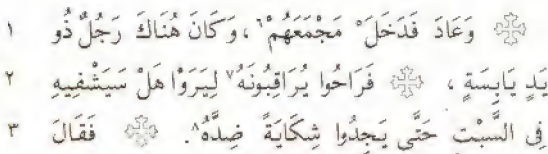 وَعَادَ فَدَخَلَ مَجْمَعَهُمْ⁶، وَكَانَ هُنَاكَ رَجُلٌ ذُو ١
يَدٍ يَابِسَةٍ، فَرَاحُوا يُرَاقِبُونَهُ⁷ لِيَرَوْا هَلْ سَيَشْفِيهِ ٢
فِي السَّبْتِ حَتَّى يَجِدُوا شِكَايَةً ضِدَّهُ⁸. فَقَالَ ٣